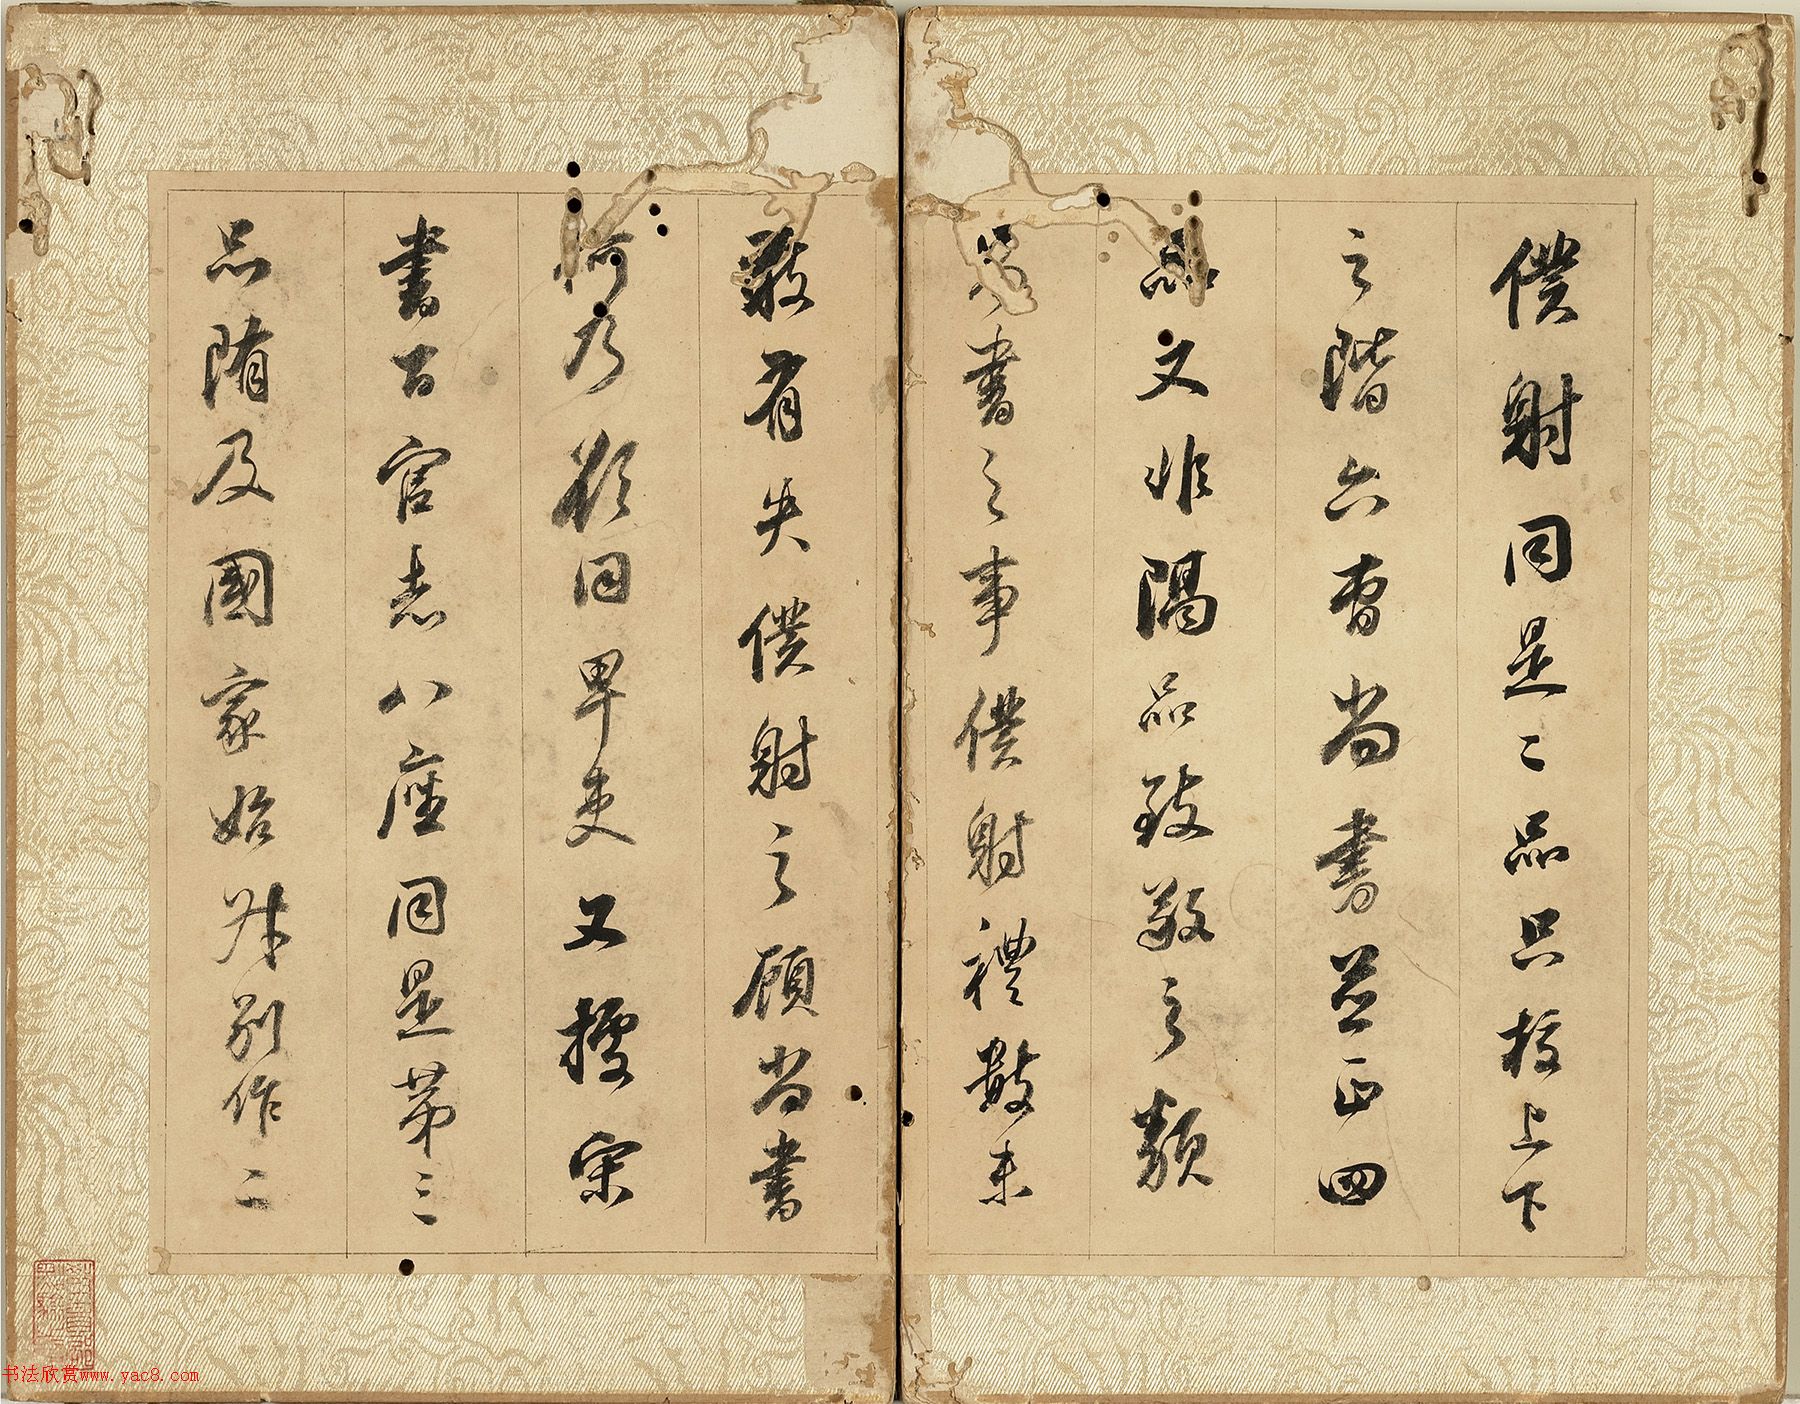 僕射同是二品只校上下
之階六曹尚書並正四
品又非隔品致敬之類
尚書之事僕射禮數未
敢有失僕射之顧尚書
何乃欲同卑吏又據宋
書百官志八座同是第三
品隋及國家始升別作二
书法欣赏www.yac8.com